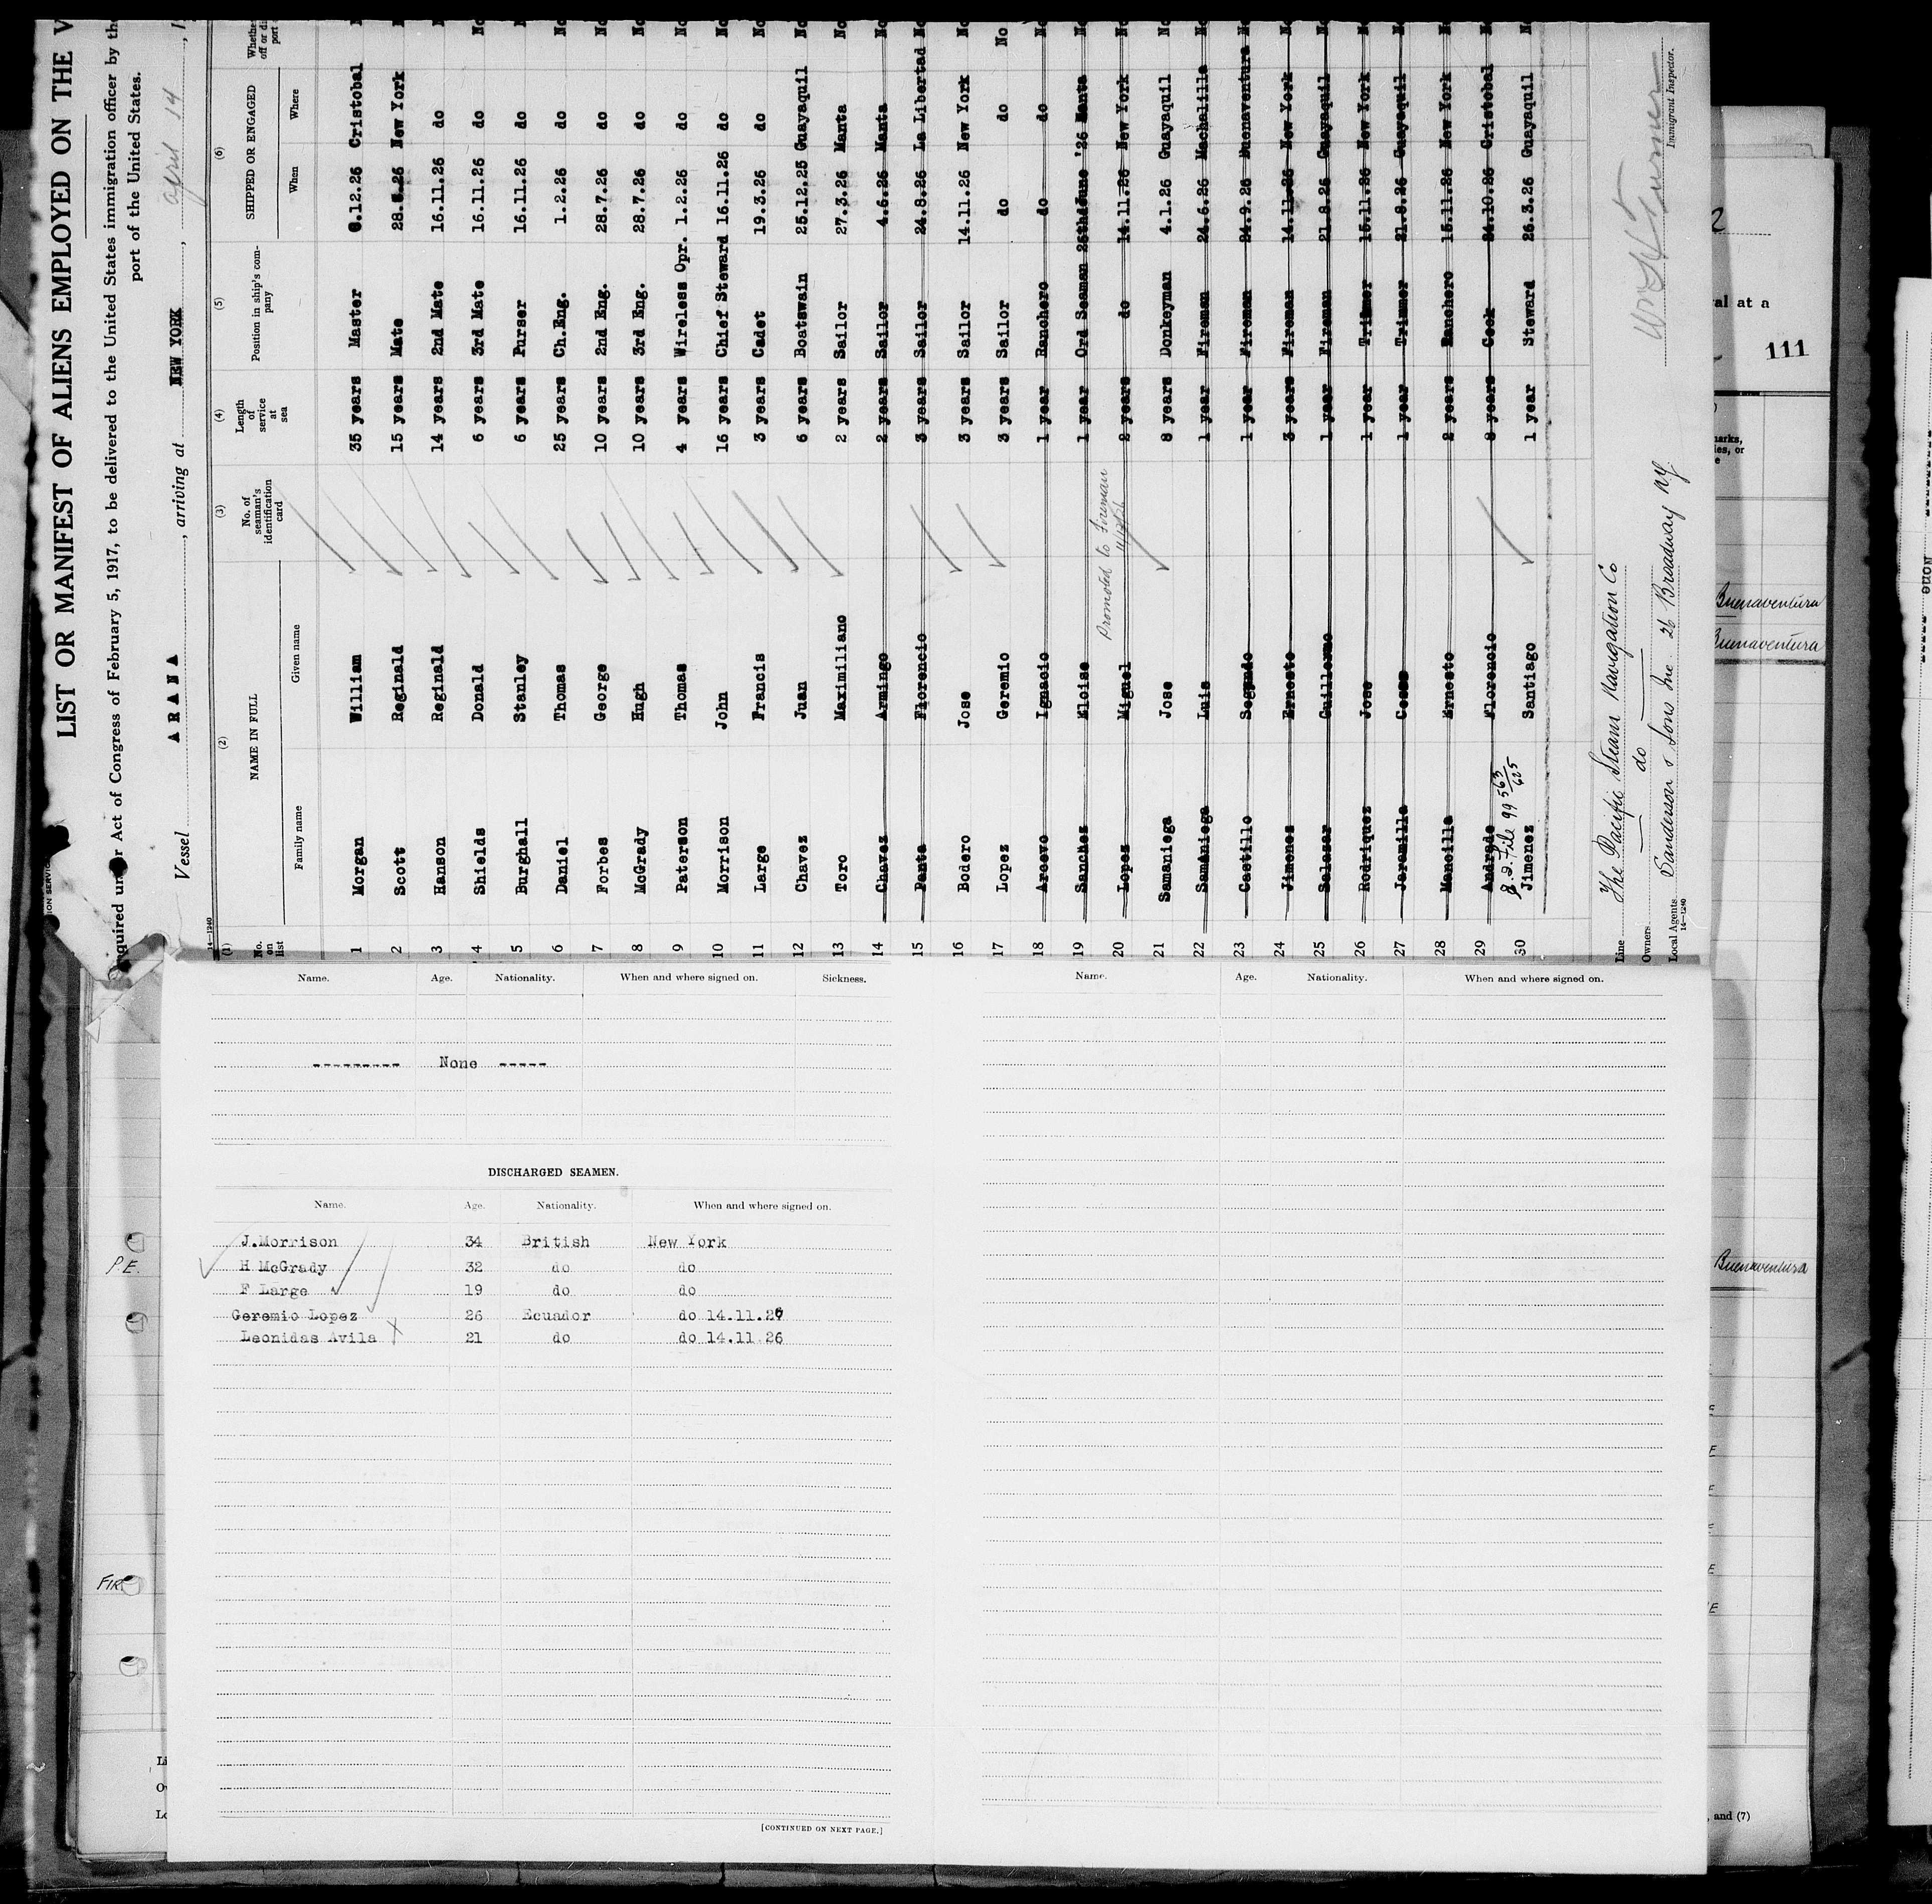 LIST OR MANIFEST OF ALIENS EMPLOYED ON THE V
Required under Act of Congress of February 5, 1917, to be delivered to the United States immigration officer by the
port of the United States.
Vessel ARANA, arriving at NEW YORK, april 14, 1
14—1240
(1) (2) (3) (4) (5) (6)
No. on list NAME IN FULL No. of seaman's identification card Length of service at sea Position in ship's company SHIPPED OR ENGAGED Whether
Family name Given name When Where
1 Morgan William 35 years Master 6.12.26 Cristobal
2 Scott Reginald 15 years Mate 28.8.26 New York
3 Hanson Reginald 14 years 2nd Mate 16.11.26 do
4 Shields Donald 6 years 3rd Mate 16.11.26 do No
5 Burghall Stanley 6 years Purser 16.11.26 do
6 Daniel Thomas 25 years Ch.Eng. 1.2.26 do No
7 Forbes George 10 years 2nd Eng. 28.7.26 do No
8 McGrady Hugh 10 years 3rd Eng. 28.7.26 do No
9 Paterson Thomas 4 years Wireless Opr. 1.2.26 do No
10 Morrison John 16 years Chief Steward 16.11.26 do No
11 Large Francis 3 years Cadet 19.3.26 do No
12 Chavez Juan 6 years Boatswain 25.12.25 Guayaquil No
13 Toro Maximiliano 2 years Sailor 27.3.26 Manta No
14 Chavez Armingo 2 years Sailor 4.6.26 Manta No
15 Panta Florencio 3 years Sailor 24.8.26 La Libertad No
16 Bodero Jose 3 years Sailor 14.11.26 New York No
17 Lopez Geremio 3 years Sailor do do No
18 Arcevo Ignacio 1 year Ranchero do do No
19 Sanchez Eloise 1 year Ord Seaman 25th June '26 Manta No
Promoted to Fireman
20 Lopez Miguel 2 years do 14.11.26 New York No
21 Samaniega Jose 8 years Donkeyman 4.1.26 Guayaquil No
22 Samaniega Luis 1 year Fireman 24.6.26 Machalilla No
23 Castillo Segundo 1 year Fireman 24.9.26 Buenaventura No
24 Jimenez Ernesto 3 years Fireman 14.11.26 New York No
25 Salazar Guillermo 1 year Fireman 21.8.26 Guayaquil No
26 Rodriquez Jose 1 year Trimmer 15.11.26 New York No
27 Jaramillo 1 year Trimmer 21.8.26 Guayaquil No
28 Mancilla Ernesto 2 years Ranchero 15.11.26 New York No
29 Andrade Florencio 8 years Cook 24.10.26 Cristobal No
File 99 563/625
30 Jimenez Santiago 1 year Steward 26.3.26 Guayaquil No
Line The Pacific Steam Navigation Co
Owners do
Local Agents Sanderson & Sons Inc 26 Broadway NY.
14—1240
Immigrant Inspector.
Name. Age. Nationality. When and where signed on. Sickness.
--------- None -----
DISCHARGED SEAMEN.
Name. Age. Nationality. When and where signed on.
J.Morrison 34 British New York
H McGrady 32 do do
F Large 19 do do
Geremio Lopez 26 Ecuador do 14.11.26
Leonidas Avila 21 do do 14.11.26
[CONTINUED ON NEXT PAGE.]
Name. Age. Nationality. When and where signed on.
P.E.
FIR
al at a
111
Buenaventura
Buenaventura
Buenaventura
, and (7)